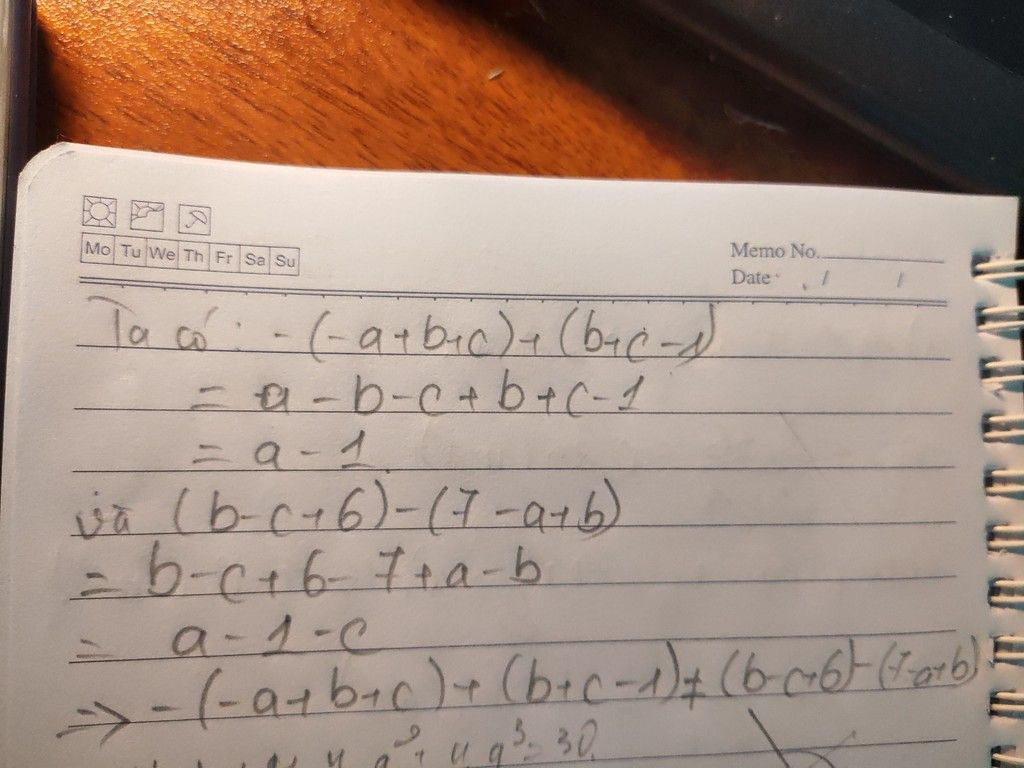 Mo Tu We Th Fr Sa Su
Memo No.
Date / /
Ta có: -(-a+b+c)+(b+c-1)
= a-b-c+b+c-1
= a-1
và (b-c+6)-(7-a+b)
= b-c+6-7+a-b
= a-1-c
=> -(-a+b+c)+(b+c-1)≠(b-c+6)-(7-a+b)